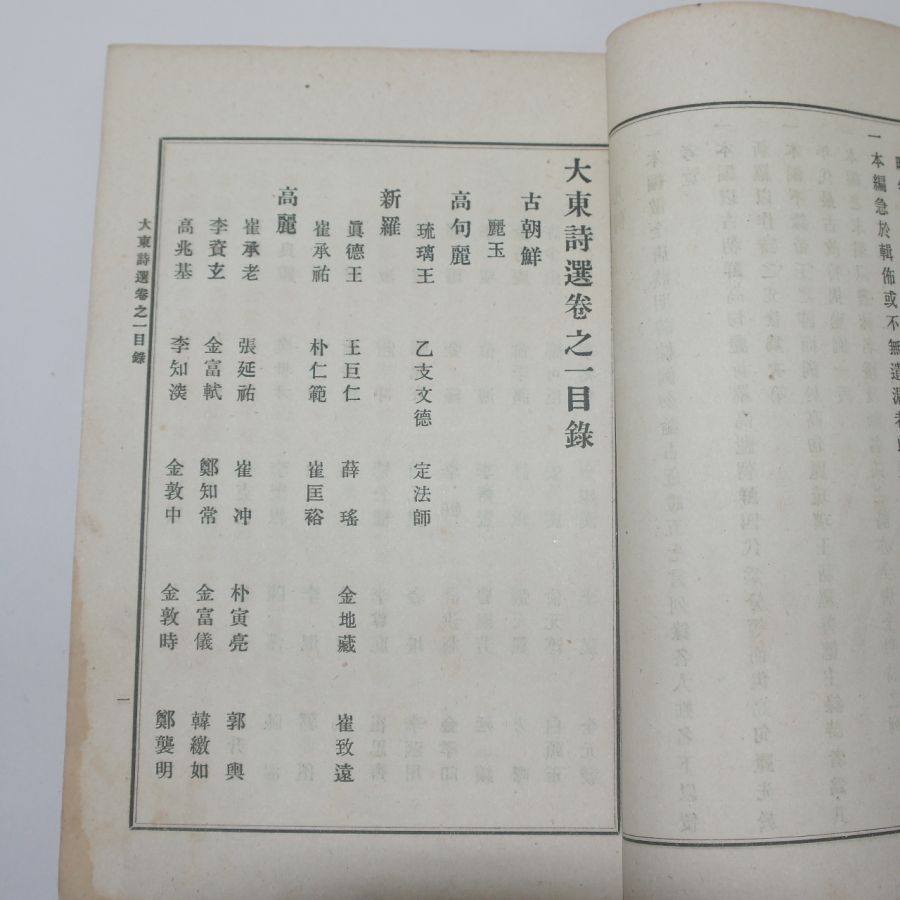 一本編急於輯佈或不無遺漏者
大東詩選卷之一目錄
古朝鮮
麗玉
高句麗
琉璃王 乙支文德 定法師
新羅
眞德王 王巨仁 薛瑤 金地藏 崔致遠
崔承祐 朴仁範 崔匡裕
高麗
崔承老 張延祐 崔冲 朴寅亮 郭升輿
李資玄 金富軾 鄭知常 金富儀 韓繳如
高兆基 李知深 金敦中 金敦時 鄭襲明
大東詩選卷之一目錄
一